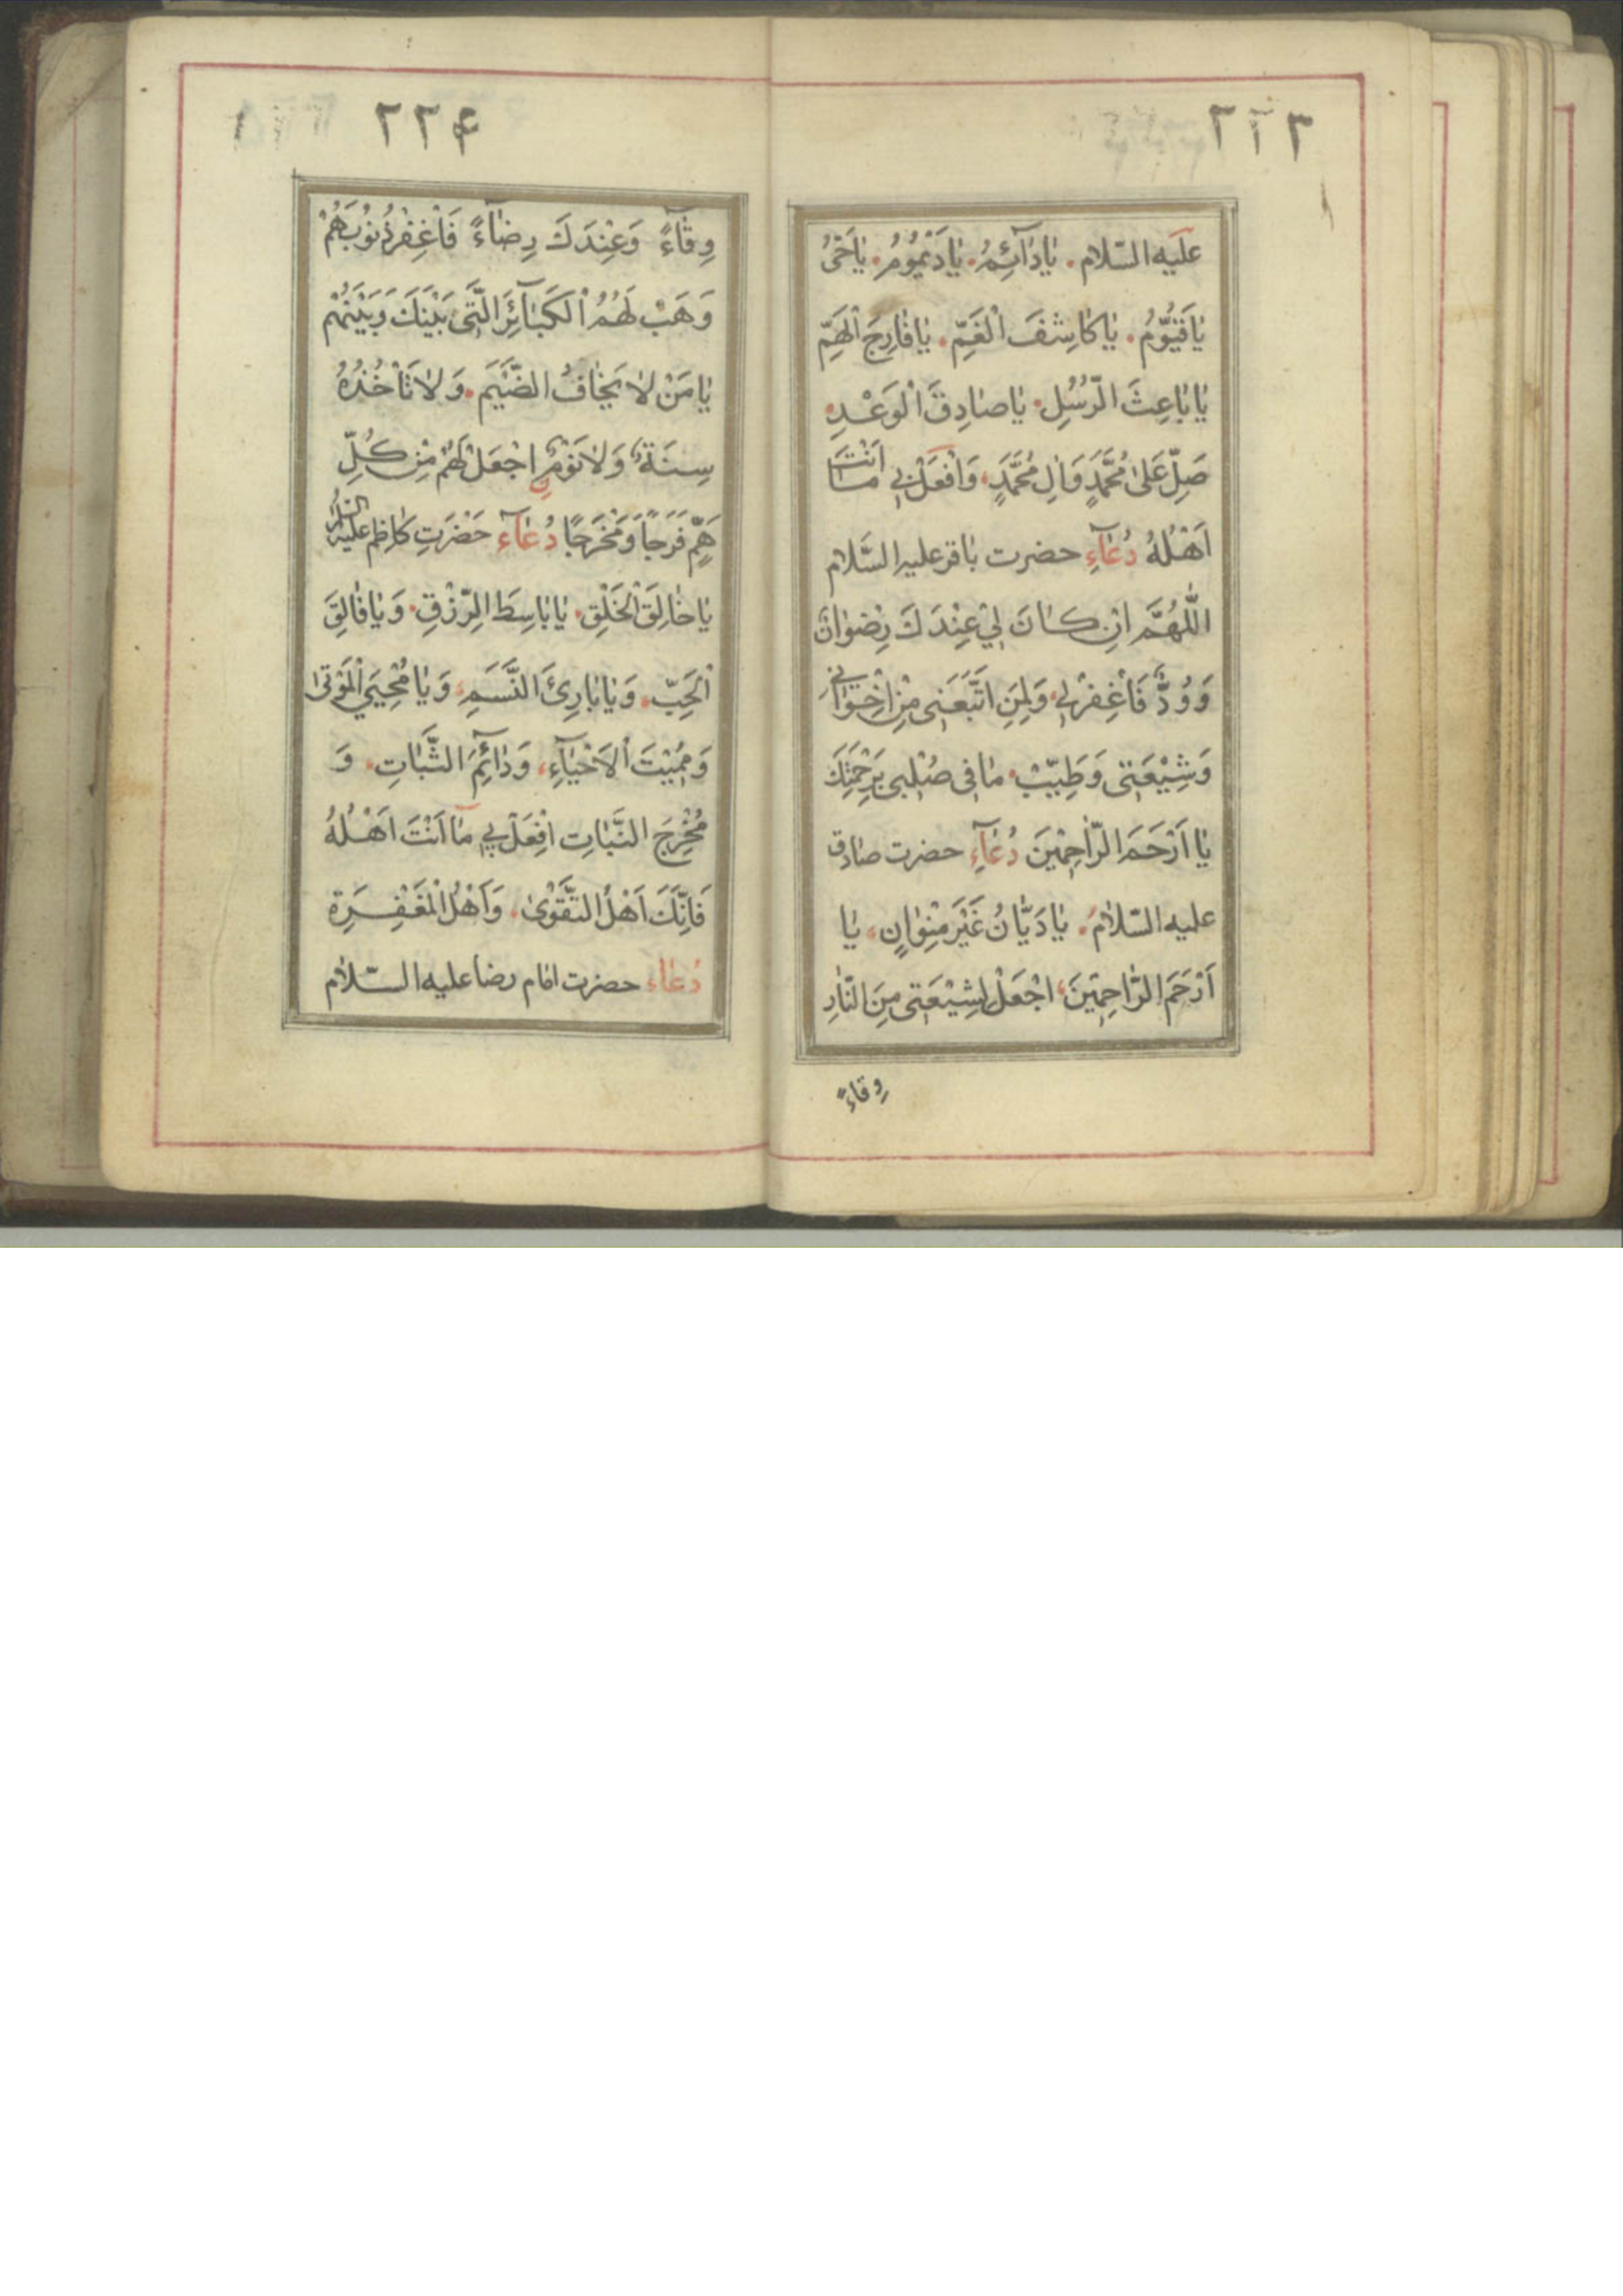 ٢٢٣
عَلَيه السّلام. يٰادٰآئِمُ. يٰادَيْمُوُمُ. يٰاحَىُّ
يٰاقَيُّوُمُ. يٰاكٰاشِفَ الْغَمِّ. يٰافٰارِجَ الْهَمِّ
يٰابٰاعِثَ الرُّسُلِ. يٰاصٰادِقَ الْوَعْدِ.
صَلِّ عَلىٰ مُحَمَّدٍ وَاٰلِ مُحَمَّدٍ، وَافْعَلْ بي مٰا اَنْتَ
اَهْلُهُ دُعٰآءِ حضرت بٰاقر عليه السَّلام
اَللّٰهُمَّ اِنْ كٰانَ لِيْ عِنْدَكَ رِضْوٰانٌ
وَوُدٌّ فَاغْفِرْلِي، وَلِمَنِ اتَّبَعَنِى مِنْ اِخْوٰانِي
وَشِيْعَتِى وَطَيِّبْ. مٰا فِى صُلْبِى بِرَحْمَتِكَ
يٰا اَرْحَمَ الرّٰاحِمْيَن دُعٰآءِ حضرت صٰادق
عليه السّلٰامُ. يٰادَيّٰانُ غَيْرَ مُتْوٰانٍ، يٰا
اَرْحَمَ الرّٰاحِمْيَنَ، اجْعَلْ لِشِيْعَتِى مِنَ النّٰارِ
وِقٰاءً
٢٢۴
وِقٰآءً وَعِنْدَكَ رِضٰآءً فَاغْفِرْ ذُنُوُبَهُمْ
وَهَبْ لَهُمُ الْكَبٰآئِرَ الَّتِى بَيْنَكَ وَبَيْنَهُمْ
يٰا مَنْ لٰا يَخٰافُ الضَّيْمَ. وَلٰا تَأْخُذُهُ
سِنَةٌ، وَلٰا نَوْمٌ اِجْعَلْ لَهُمْ مِنْ كُلِّ
هَمٍّ فَرَجًا وَمَخْرَجًا دُعٰآءِ حَضْرَتِ كٰاظِم عليه السّلام
يٰاخٰالِقَ الْخَلْقِ. يٰابٰاسِطَ الرِّزْقِ. وَيٰافٰالِقَ
الْحَبِّ. وَيٰابٰارِئَ النَّسَمِ، وَيٰا مُحْيِيَ الْمَوْتىٰ
وَمُمِيْتَ الْاَحْيٰآءِ، وَدٰآئِمَ الثَّبٰاتِ. وَ
مُخْرِجَ النَّبٰاتِ اِفْعَلْ بِي مٰا اَنْتَ اَهْلُهُ
فَاِنَّكَ اَهْلُ التَّقْوىٰ. وَاَهْلُ الْمَغْفِرَةِ
دُعٰاءِ حضرت امٰام رضا عليه السّلٰام